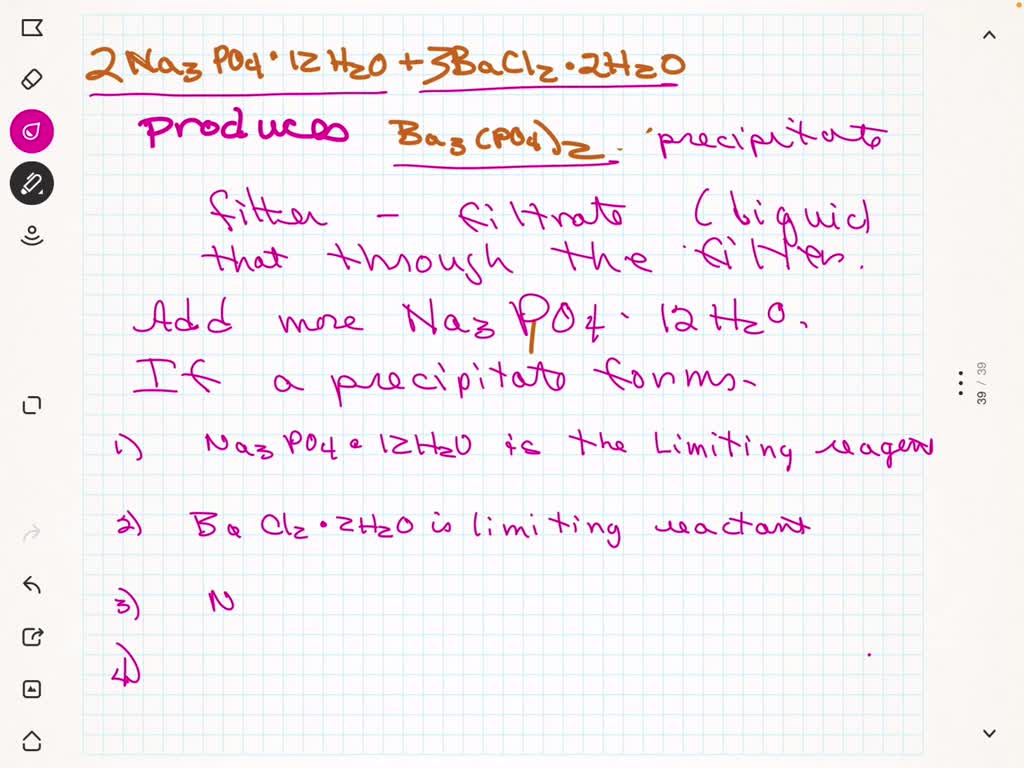 2Na3PO4·12H2O + 3BaCl2·2H2O
produces Ba3(PO4)2. precipitate
filter - filtrate (liquid)
that through the filter.
Add more Na3PO4·12H2O.
If a precipitate forms-
1) Na3PO4·12H2O is the Limiting reagent
2) BaCl2·2H2O is limiting reactant
3) N
4)
39 / 39